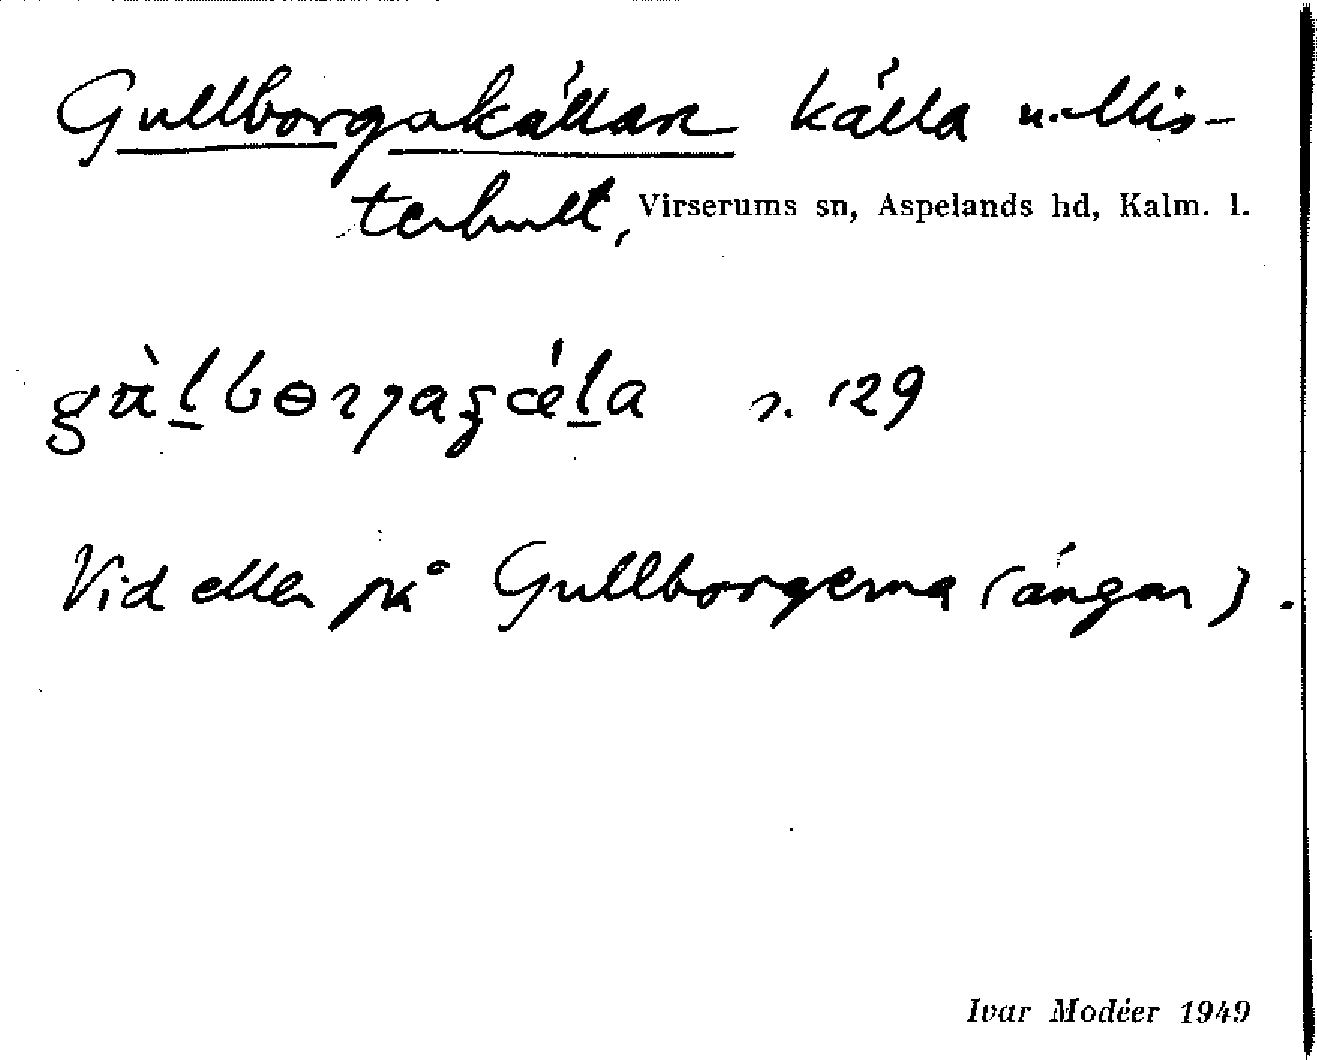 Gullborgakällan källa u. Mis-
terhult, Virserums sn, Aspelands hd, Kalm. l.
s. 129
Vid eller på Gullborgerna (ängar).
Ivar Modéer 1949